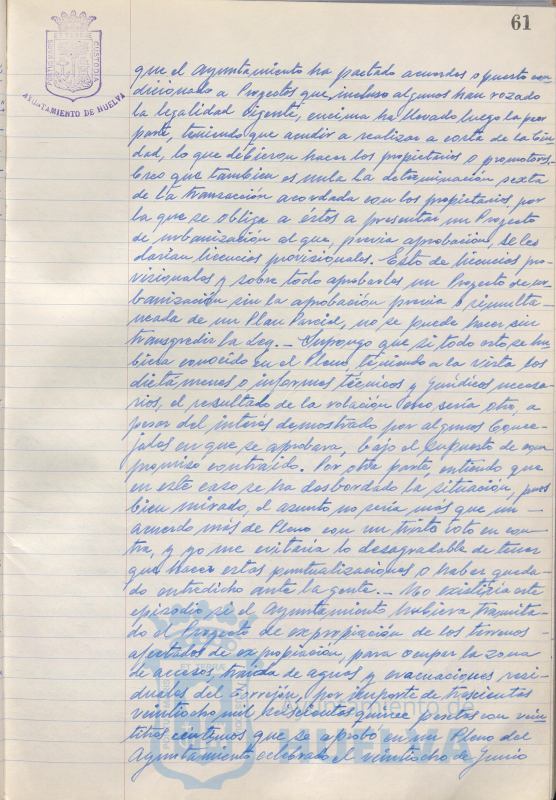 61
AYUNTAMIENTO DE HUELVA
que el Ayuntamiento ha pactado acuerdos o puesto con-
dicionado a Proyectos que, incluso algunos han rozado
la legalidad vigente, encima ha llevado luego la peor
parte, teniendo que acudir a realizar a costa de la Ciu-
dad, lo que debieron hacer los propietarios o promotores.
Creo que tambien es nula la determinación sexta
de la transacción acordada con los propietarios, por
la que se obliga a éstos a presentar un Proyecto
de urbanización al que, previa aprobación, se les
darían licencias provisionales. Esto de licencias pro-
visionales y sobre todo aprobarles un Proyecto de ur-
banización sin la aprobación previa o simulta-
neada de un Plan Parcial, no se puede hacer sin
transgredir la Ley. - Supongo que si todo esto se hu-
biera conocido en el Pleno, teniendo a la vista los
dictámenes o informes técnicos y jurídicos necesa-
rios, el resultado de la votación sería otro, a
pesar del interés demostrado por algunos Conce-
jales en que se aprobara, bajo el supuesto de com-
promiso contraído. Por otra parte, entiendo que
en este caso se ha desbordado la situación, pues
bien mirado, el asunto no sería más que un
acuerdo más de Pleno con un voto en con-
tra, y yo me evitaría lo desagradable de tener
que hacer estas puntualizaciones o haber queda-
do entredicho ante la gente. - No existiría este
episodio si el Ayuntamiento hubiera tramita-
do el Proyecto de expropiación de los terrenos
afectados de expropiación, para ocupar la zona
de accesos, traída de aguas y evacuaciones resi-
duales del Torrejón, por importe de trescientas
veintiocho mil seiscientas quince pesetas con vein-
titrés centimos que se aprobó en un Pleno del
Ayuntamiento celebrado el veintiocho de Junio
Ayuntamiento de
HUELVA